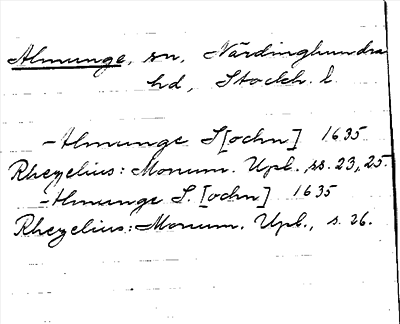 Almunge, sn, Närdinghundra
hd, Stockh. l.
Almunge S[ochn] 1635
Rhezelius: Monum. Upl. ss. 23, 25.
Almunge S. [ochn] 1635
Rhezelius: Monum. Upl., s. 26.